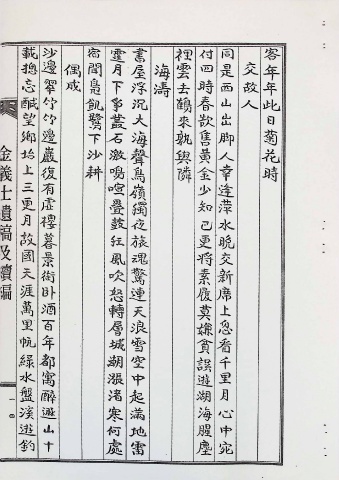 客年年此日菊花時
交故人
同是西山出脚人幸逢萍水晩交新席上忽看千里月心中宛
付四時春欲售黃金少知己更將素履莫嫌貧誤遊湖海腥塵
裡雲去鶴來孰與隣
海濤
書屋浮沉大海聲鳥嶺獨夜旅魂驚連天浪雪空中起滿地雷
霆月下爭叢石激鳴喧疊鼓狂風吹怒轉層城潮漲渚寒何處
宿閒鳧飢鷺下沙耕
偶成
沙邊翠竹竹邊巖復有虛樓暮景銜卧酒百年都寓醉遊山十
載摠忘醎望鄕坮上三更月故國天涯萬里帆綠水盤溪遊釣
金義士遺稿及續編